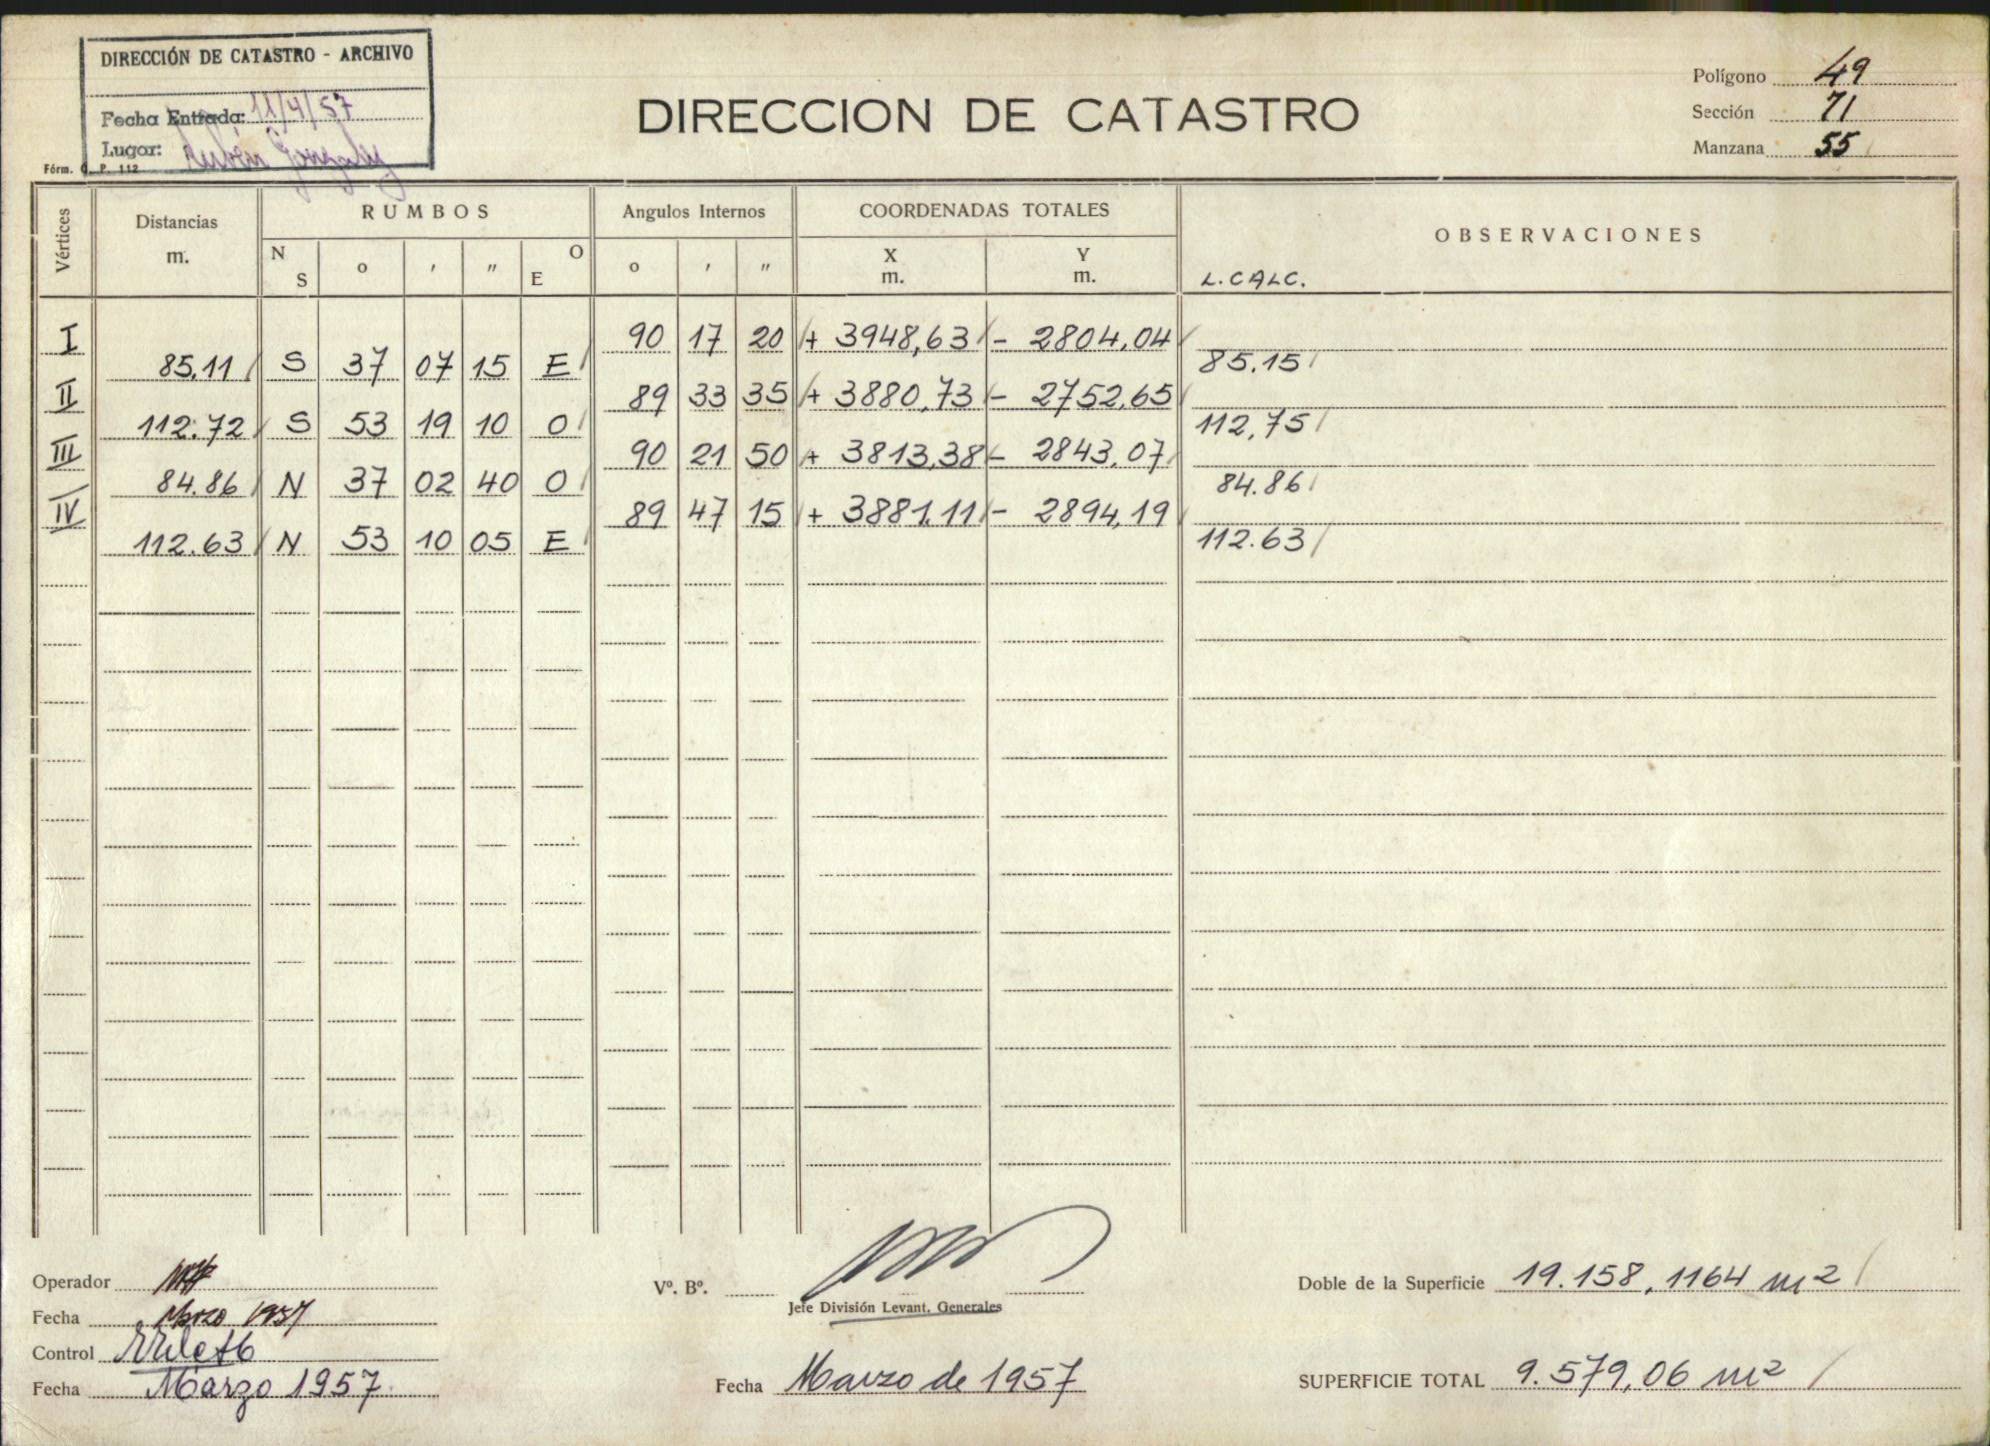 DIRECCIÓN DE CATASTRO - ARCHIVO
Fecha Entrada: 11/4/57
Lugar: Rubén González
Fórm. C. P. 112
DIRECCION DE CATASTRO
Polígono 49
Sección 71
Manzana 55
Vértices Distancias m. RUMBOS Angulos Internos COORDENADAS TOTALES OBSERVACIONES
N S o ′ ″ O E o ′ ″ X m. Y m. L. CALC.
I 90 17 20 + 3948,63 - 2804,04
85.11 S 37 07 15 E 85.15
II 89 33 35 + 3880,73 - 2752,65
112.72 S 53 19 10 O 112,75
III 90 21 50 + 3813,38 - 2843,07
84.86 N 37 02 40 O 84.86
IV 89 47 15 + 3881,11 - 2894,19
112.63 N 53 10 05 E 112.63
Operador
Fecha Marzo 1957
Control
Fecha Marzo 1957
Vº. Bº.
Jefe División Levant. Generales
Fecha Marzo de 1957
Doble de la Superficie 19.158,1164 m2
SUPERFICIE TOTAL 9.579,06 m2